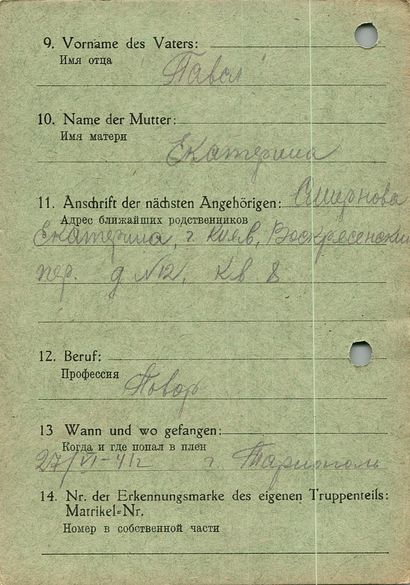 9. Vorname des Vaters:
Имя отца
Павел
10. Name der Mutter:
Имя матери
Екатерина
11. Anschrift der nächsten Angehörigen: Смирнова
Адрес ближайших родственников
Екатерина, г. Киев, Воскресенский
пер. д №12, кв 8
12. Beruf:
Профессия
Повар
13 Wann und wo gefangen:
Когда и где попал в плен
27/VI-41г г Тарнополь
14. Nr. der Erkennungsmarke des eigenen Truppenteils:
Matrikel=Nr.
Номер в собственной части